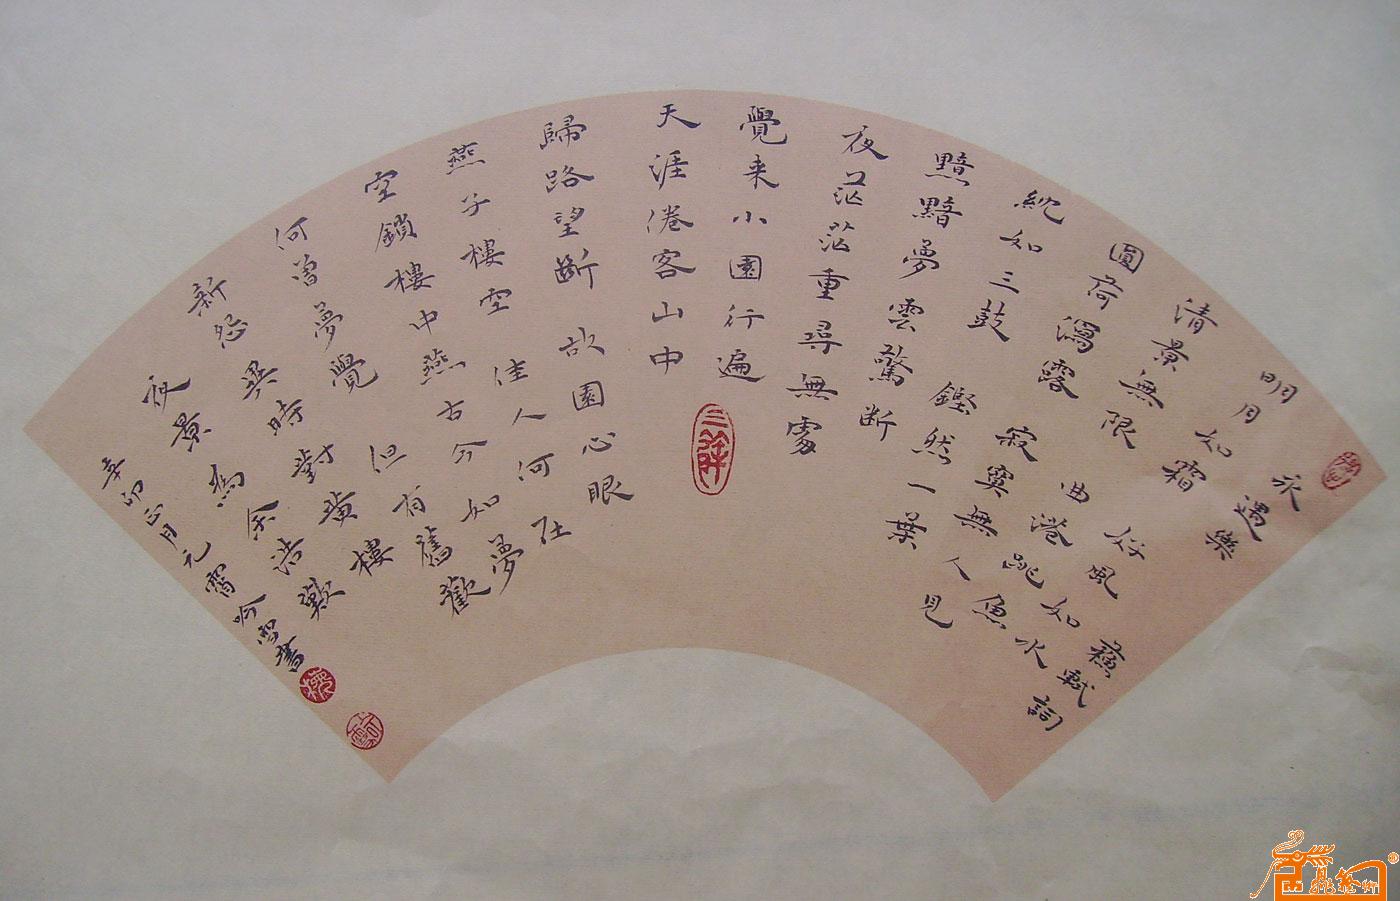 永遇樂 蘇軾詞
明月如霜 好風如水
清景無限 曲港跳魚
圓荷瀉露 寂寞無人見
紞如三鼓 鏗然一葉
黯黯夢雲驚断
夜茫茫重尋無處
覺来小園行遍
天涯倦客山中
歸路望斷 故園心眼
燕子樓空 佳人何在
空鎖樓中燕 古今如夢
何曾夢覺 但有舊歡
新怨異時對黃樓
夜景為余浩歎
辛卯正月元宵吟雪書